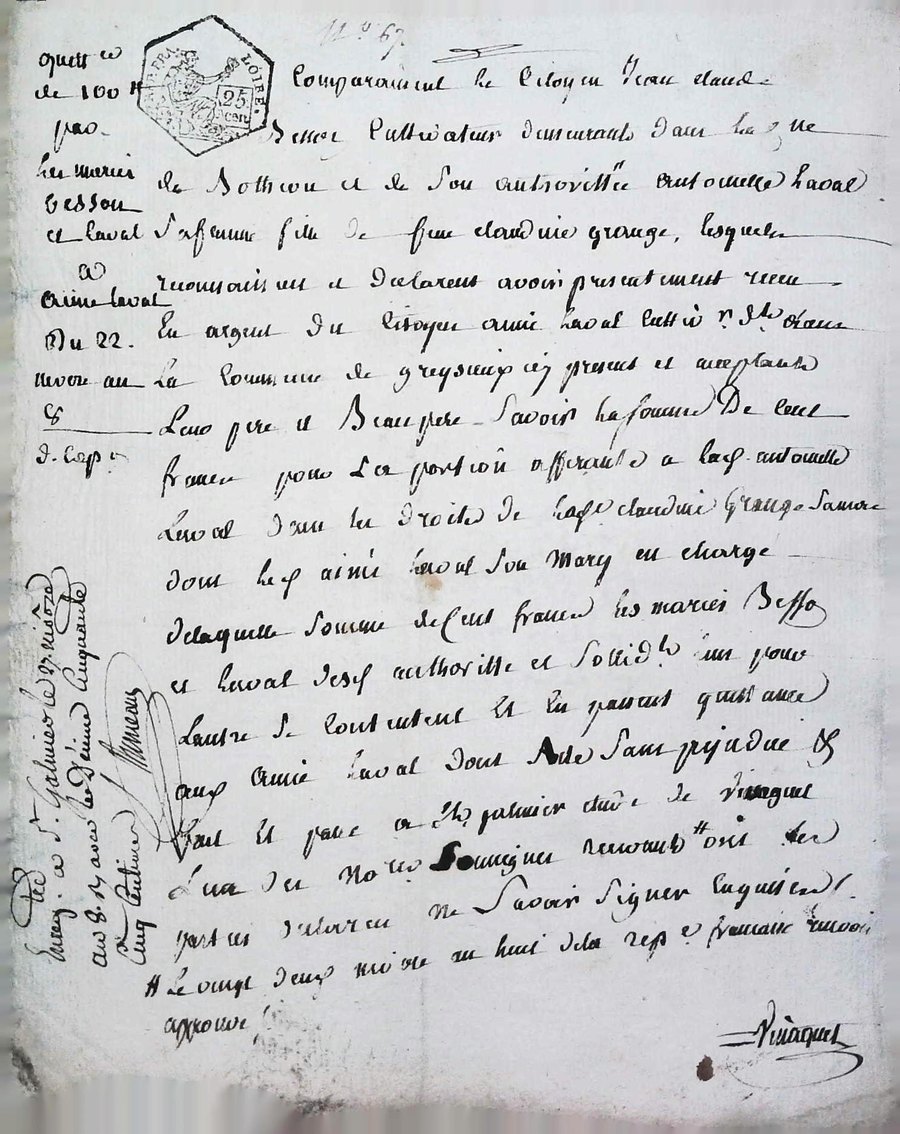 N.° 67.
quitt.ce
de 100 tt
par
les mariés
besson
et laval
a
aimé laval
Du 22.
nivose an
8
d. exp.
LOIRE.
25
Cent
Comparoissent le Citoyen Jean claude
Besson Cultivateur demeurant dans la c.ne
de et de son authorité antoinette Laval
Sa femme fille de feue claudine grange, lesquels
reconnoissent et declarent avoir presentement receu
En argent du Citoyen aimé Laval Cultiv.r d.t dans
La Commune de grezieux icy present et acceptant
Leur pere et Beaupere Savoir la somme De Cent
francs pour La portion afferante a lad. antoinette
Laval dans les droits de lad.e claudine Grange Sa mere
dont led. aimé Laval Son Mary en charge
delaquelle Somme de Cent francs les mariés Besson
et Laval desd. authorité et Sollid.t l'un pour
Lautre Se Contentent Et En passent quittance
aud. aimé Laval dont Acte Sans prejudice &
fait Et passé a St. palmier etude de Viricquel
L'un des Not.res Soussignés recevant # ont les
parties declaré ne Savoir Signer Enquises /.
# Le vingt deux nivose an huit dela rep.e francaise renvoi
approuvé /.
Enreg. a St. Galmier le 27 nivose
an 8. Reçu avec le Decime Cinquante
Cinq Centimes